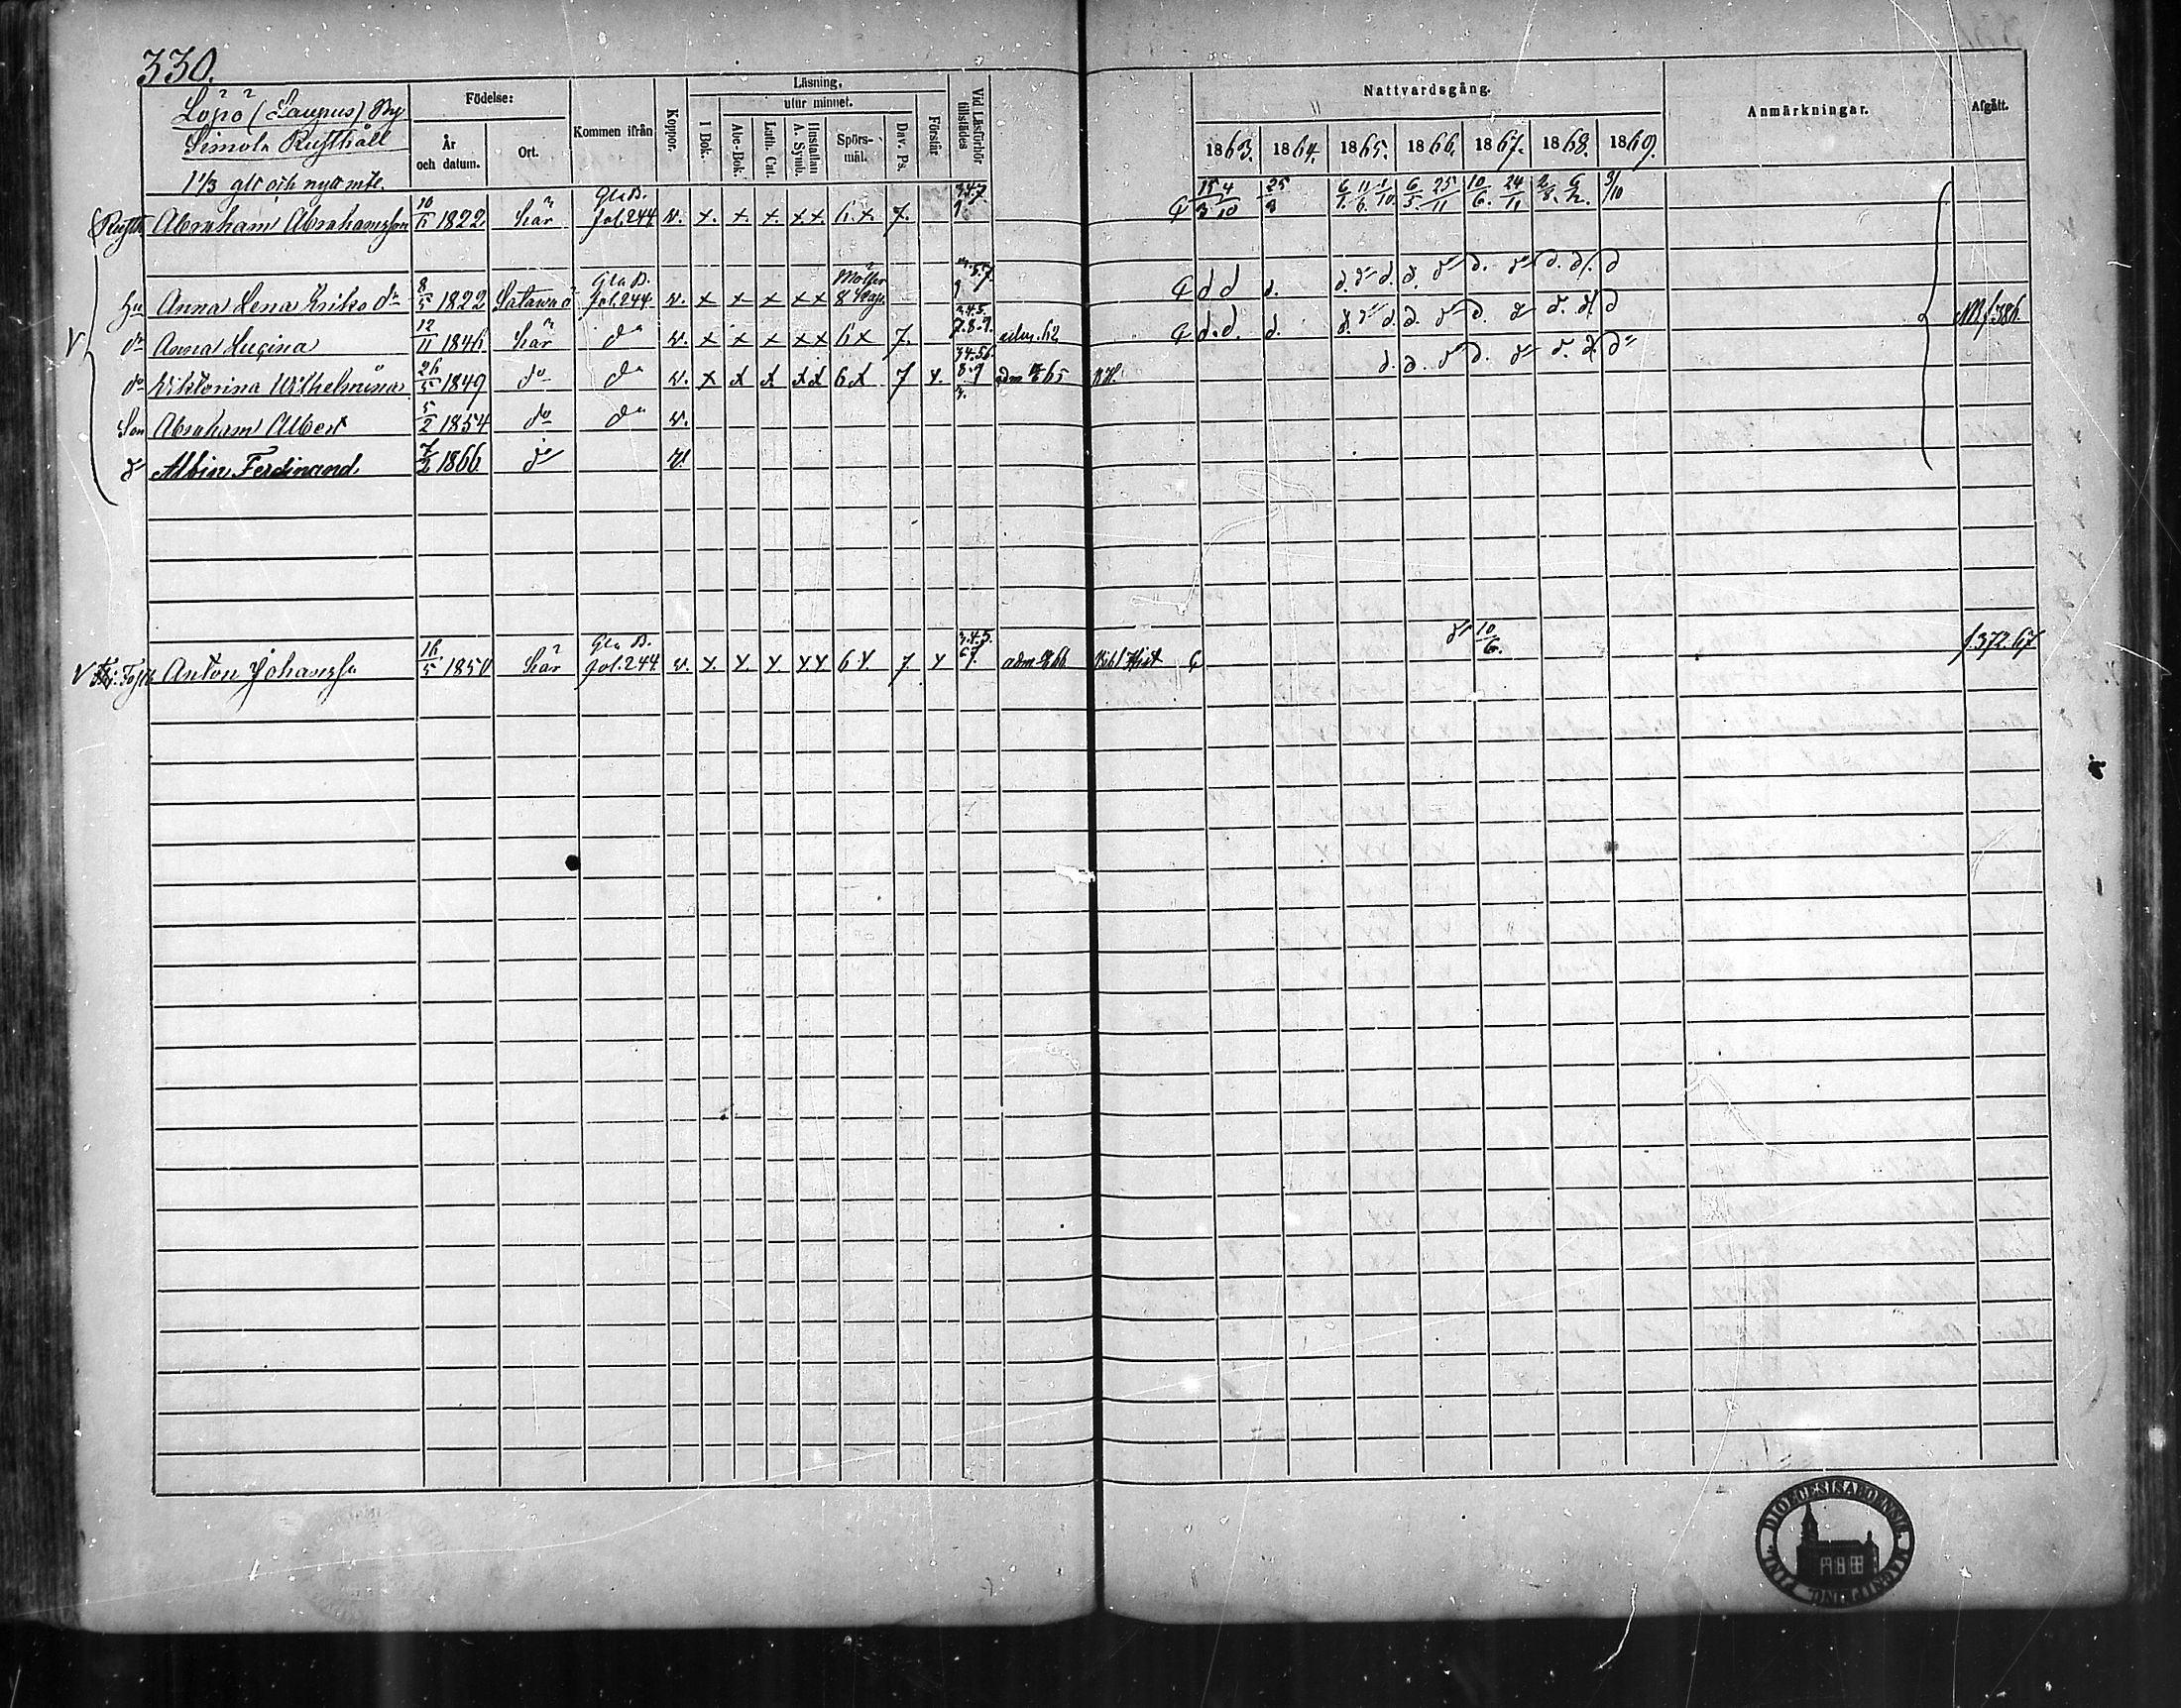 330.
Löpö (Laupus) By
Simola Rusthåll
1 1/3 glt och nytt mtl.
Födelse:
År och datum.
Ort.
Kommen ifrån
Koppor.
Läsning,
I Bok.
utur minnet.
Abc-Bok.
Luth. Cat.
Hustaflan A. Symb.
Spörs-mål.
Dav. Ps.
Förstår
Vid Läsförhör tillstädes
Nattvardsgång.
1863. 1864. 1865. 1866. 1867. 1868. 1869.
Anmärkningar.
Afgått.
Rusth. Abraham Abrahamsson 10/11 1822 här Gla B. fol. 244 v. x. x. x. x x 6 x 7. 3.4.7. 9 15/3 4/10 25/3 6/1. 11/6. 1/10. 6/5. 25/11 10/6. 24/11 2/8. 6/12. 3/10
hu Anna Lena Eriksdr 8/5 1822 Gla B. fol. 244. v. x x x x x 8 d d d. d. do d. d. do d. do d. d. d
dr Anna Lucina 12/11 1846 här do v. x x x x x 6 x 7. 3.4.5. 7.8.9. adm. 62 d. d. d. NB f 386
do Viktorina Wilhelmina 26/5 1849 do do v. x x x x x 6 x 7 x. 3.4.5.6. 8.9 adm 65 B.H. d. d. do d. do d. d. do
Son Abraham Albert 5/2 1854 do do v.
do Albin Ferdinand 7/2 1866 do v.
Anton Johansso 16/5 1850 här Gla B. fol. 244. v. x. x. x x x 6 x. 7 x 3.4.5. 6.7. adm 66 Bibl Hist do 10/6. f. 372. 67
FINL. DIOECESIS ABOENSIS MAGNI PRINC.